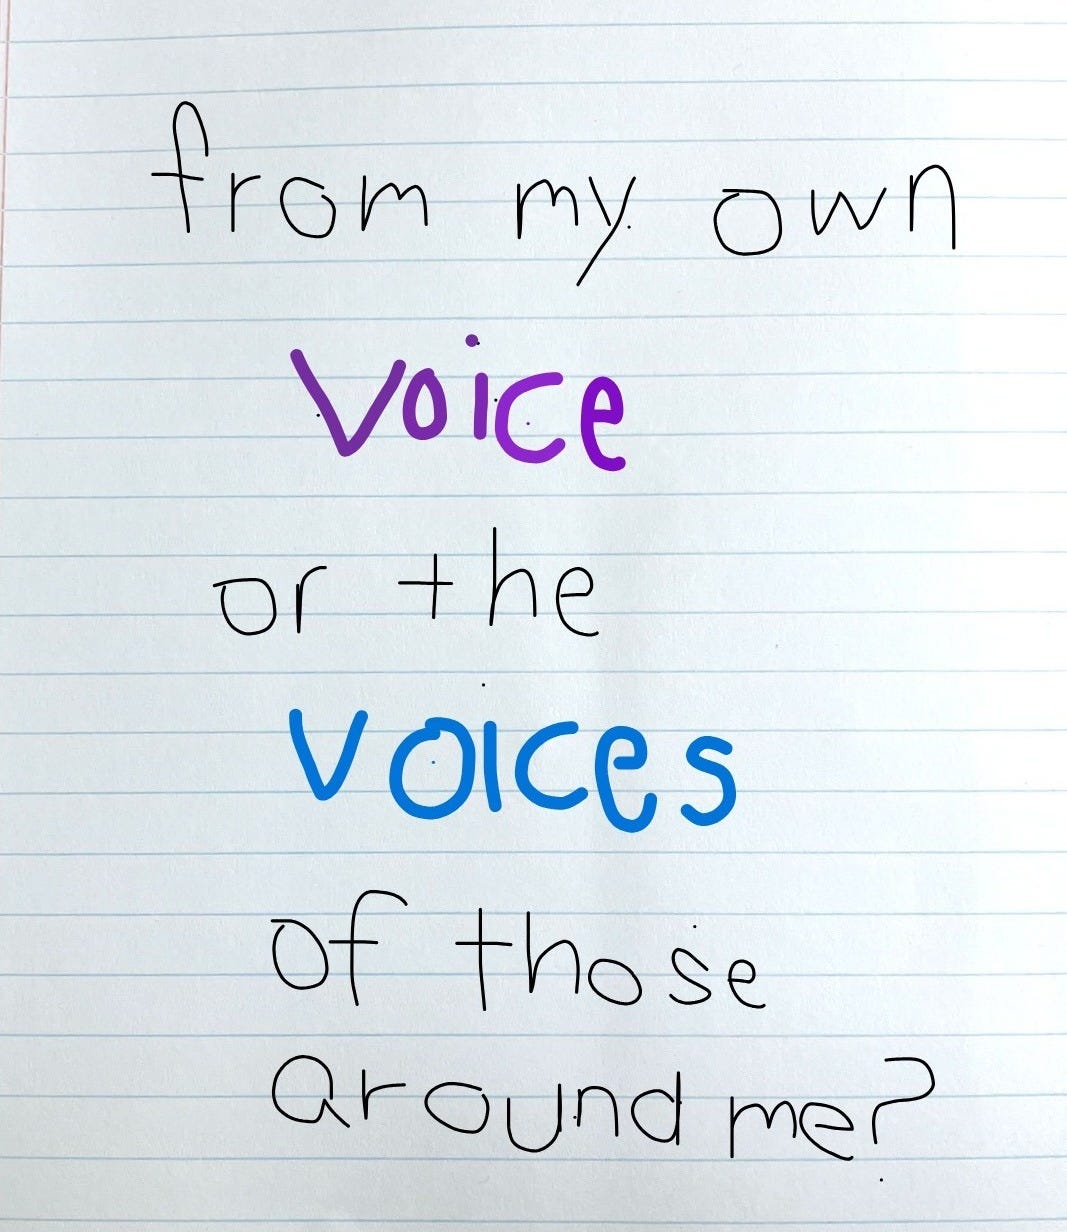 from my own
voice
or the
voices
of those
around me?